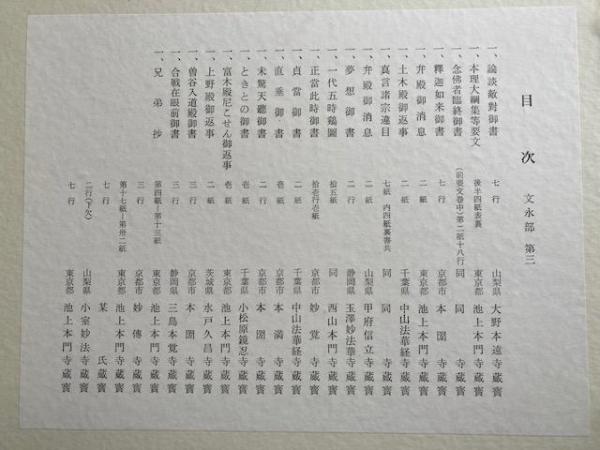 目次 文永部 第三
一、論談敵對御書 七行 山梨県 大野本遠寺蔵寳
一、本理大綱集等要文 後半四紙表裏 東京都 池上本門寺蔵寳
一、念佛者臨終御書 (前要文巻中)第二紙十八行 同 同
一、釋迦如来御書 七行 京都市 本圀寺蔵寳
一、弁殿御消息 二紙 東京都 池上本門寺蔵寳
一、土木殿御返事 二紙 千葉県 中山法華経寺蔵寳
一、真言諸宗違目 七紙 内四紙裏書共 同 同
一、弁殿御消息 二紙 山梨県 甲府信立寺蔵寳
一、夢想御書 二行 静岡県 玉澤妙法華寺蔵寳
一、一代五時鶏圖 拾五紙 同 西山本門寺蔵寳
一、正當此時御書 拾壱行壱紙 京都市 妙覚寺蔵寳
一、貞當御書 二紙 千葉県 中山法華経寺蔵寳
一、直垂御書 壱紙 京都市 本満寺蔵寳
一、未驚天聽御書 二行 京都市 本圀寺蔵寳
一、ときとの御書 壱紙 千葉県 小松原鏡忍寺蔵寳
一、富木殿尼こせん御返事 壱紙 東京都 池上本門寺蔵寳
一、上野殿御返事 二紙 茨城県 水戸久昌寺蔵寳
一、曽谷入道殿御書 三行 京都市 本圀寺蔵寳
一、合戦在眼前御書 三行 静岡県 三島本覚寺蔵寳
一、兄弟抄 第四紙―第十三紙 東京都 池上本門寺蔵寳
三行 京都市 妙傳寺蔵寳
第十七紙―第卅二紙 東京都 池上本門寺蔵寳
七行 某氏蔵寳
二行(下欠) 山梨県 小室妙法寺蔵寳
七行 東京都 池上本門寺蔵寳